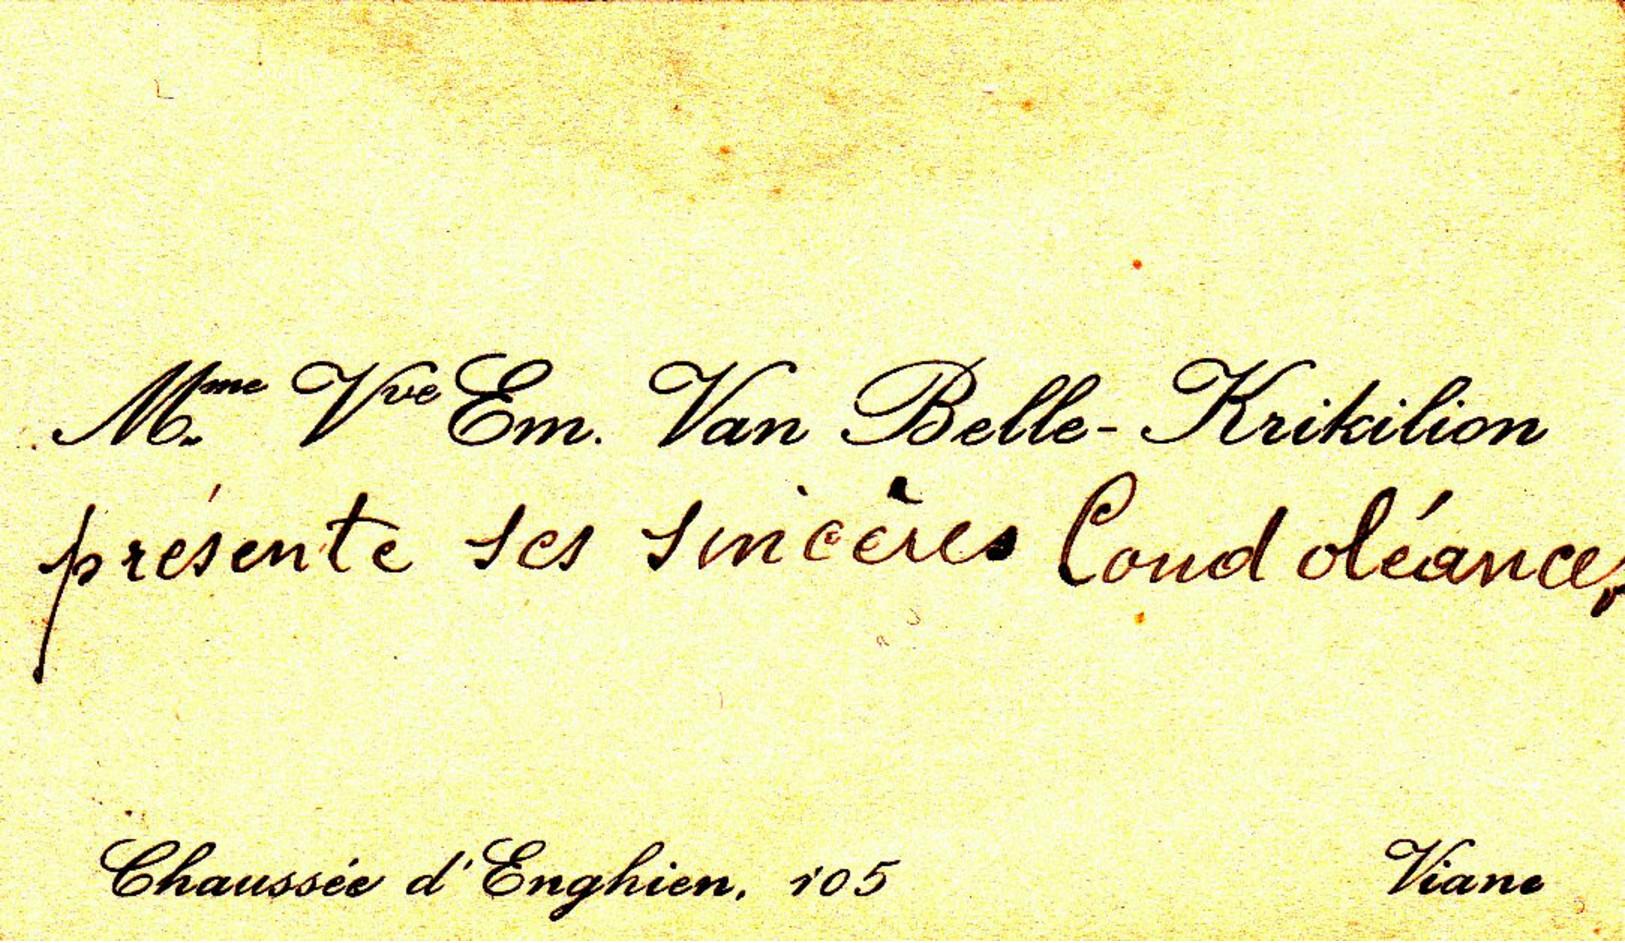 Mme Vve Em. Van Belle-Krikilion
présente ses sincères Condoléances
Chaussée d'Enghien, 105
Viane